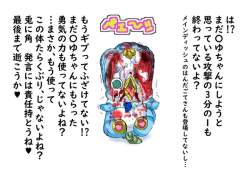 は!?
まだ〇ゆちゃんにしようと
思ってる攻撃の3分の1も
終わってないよ?
メインディッシュのはんだごてさんも登場してないし…
もうギブってふざけてない!?
まだ〇ゆちゃんにもらった
勇気の力も使ってないよね?
…まさか、もう使って
この体たらくぶり、じゃないよね?
兎に角、発言には責任持とうね♥
最後まで逝こうか♥